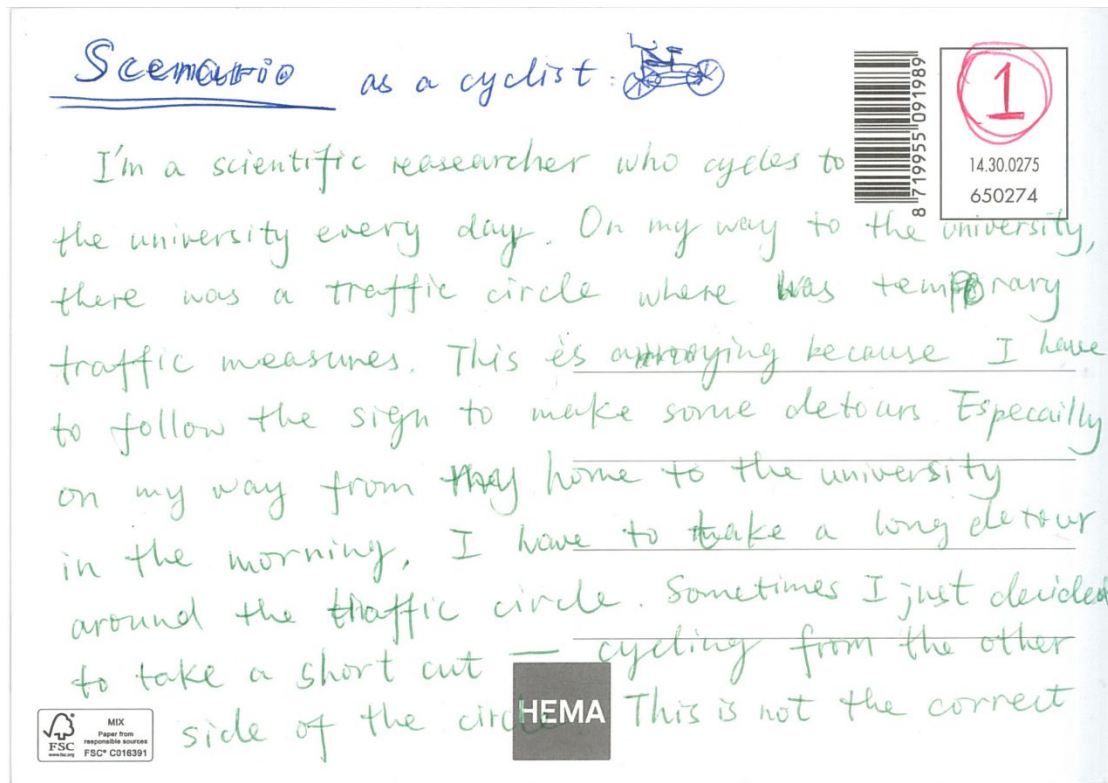 Scenario as a cyclist:
1
8 719955 091989
14.30.0275
650274
I'm a scientific reasearcher who cycles to
the university every day. On my way to the university,
there was a traffic circle where was temporary
traffic measures. This is annoying because I have
to follow the sign to make some detours Especailly
on my way from my home to the university
in the morning, I have to take a long detour
around the traffic circle. Sometimes I just decided
to take a short cut — cycling from the other
side of the circle. This is not the correct
HEMA
FSC
www.fsc.org
MIX
Paper from
responsible sources
FSC® C016391